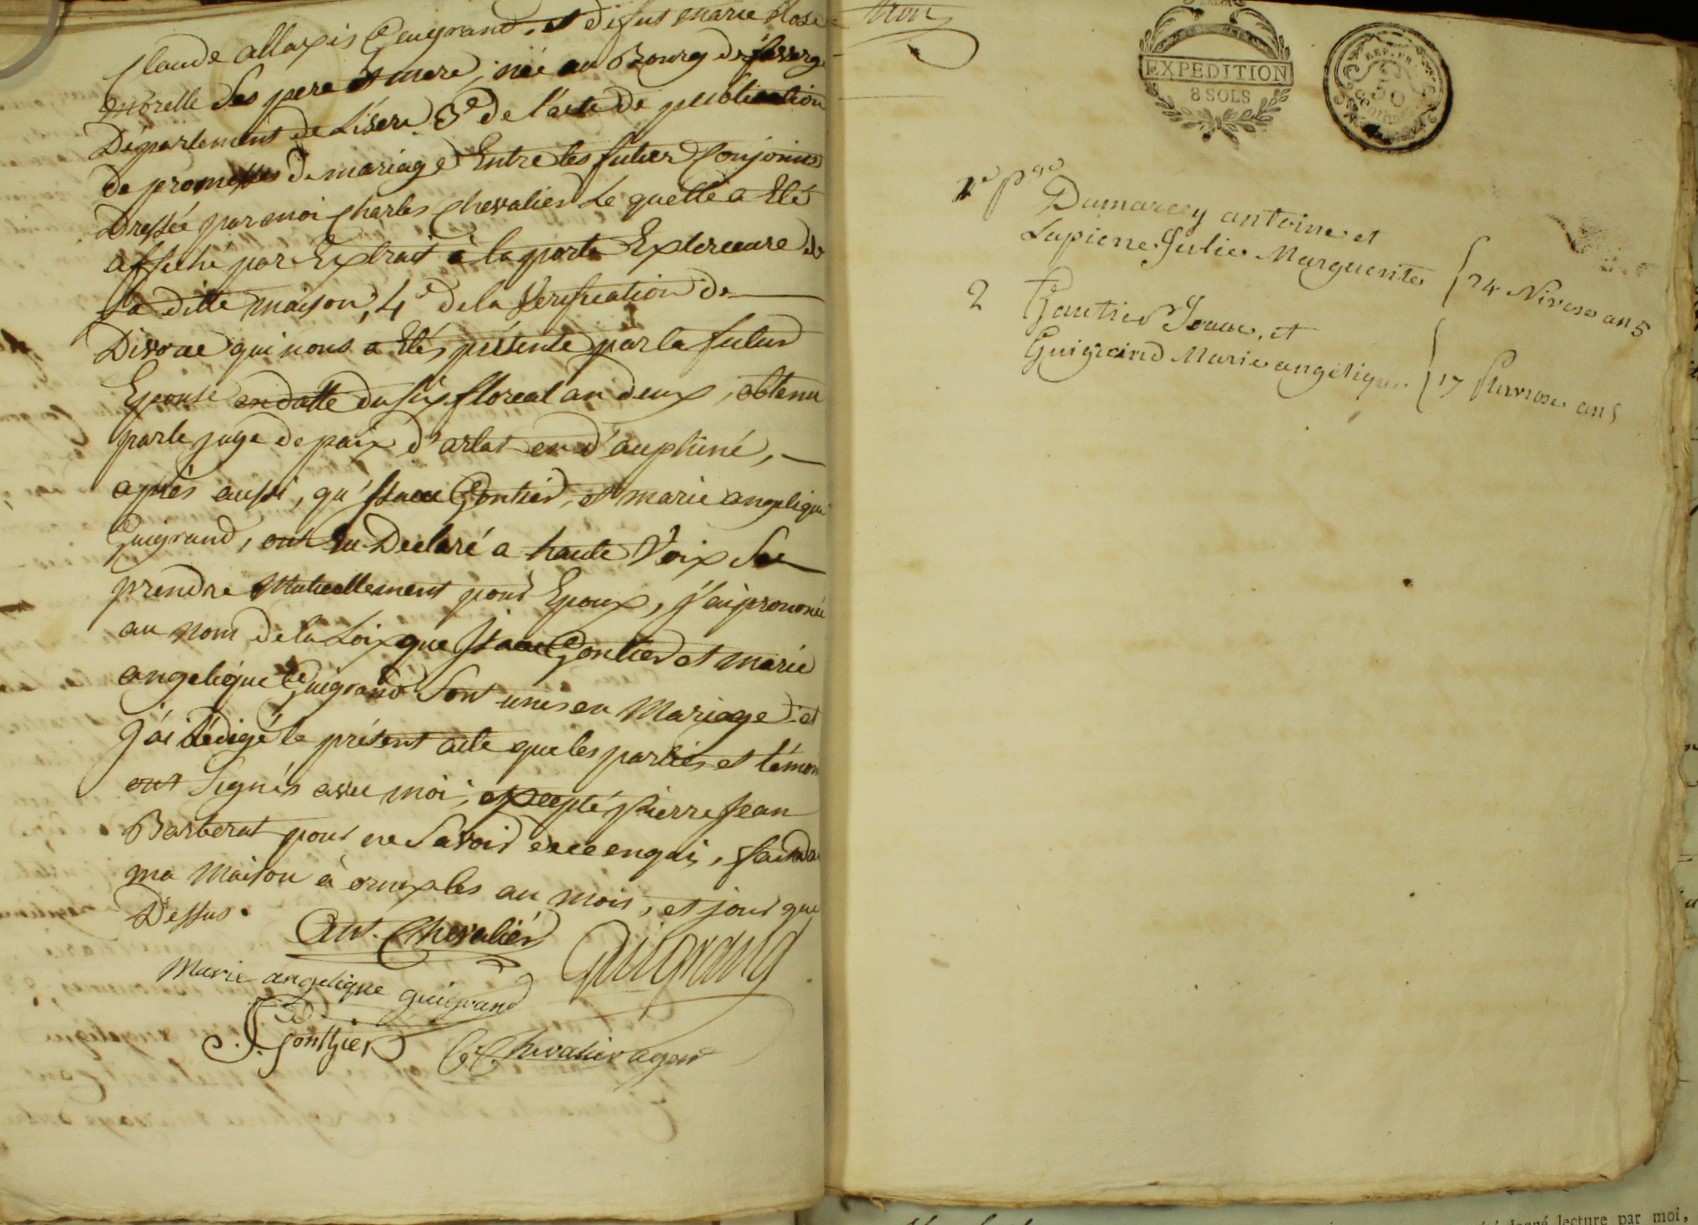 Claude allexis Guigrand, et défut marie Rose
morelle Ses pere et mere, née au Bourg de
Département de Lisere 3e de l'acte de publication
de promesses de mariage Entre les futur Conjoins
Dressée par moi Charles Chevalier Le quelle a Eté
affiché par Extrait a la porte Exterieure de
la ditte maison, 4e de la Verification de
Divorce qui nous a Etés présenté par la futur
Epouse endatte du six floreal an deux, obtenu
par le juge de paix d'artat en d'auphiné,
après aussi, qu'Isaac Gontier, et marie angelique
Guigrand, ont Eu Déclaré a haute Voix Se
prendre Mutuellement pour Epoux, j'ai prononcé
au Nom de la Loix que Isaac Gontier et marie
angelique Guigrand Sont unis en Mariage et
J'ai Rédigé le présent acte que les parties et témoin
ont Signés avec moi, excepté Pierre Jean
Barberat pour ne Savoir de ce enquis, fait dans
ma Maison à ornex les an mois, et jour que
Dessus.
Ant. Chevalier
Guigrand
Marie angelique guigrand
J. Gonthier
C. Chevalier agent
EXPEDITION
8 SOLS
1e pge
Dumarcey antoine et
Lapierre Julie Marguerite { 24 Nivose an 5
2 Gautier Isaac, et
Guigrand Marie angelique { 17 Pluviose an 5
lecture par moi,